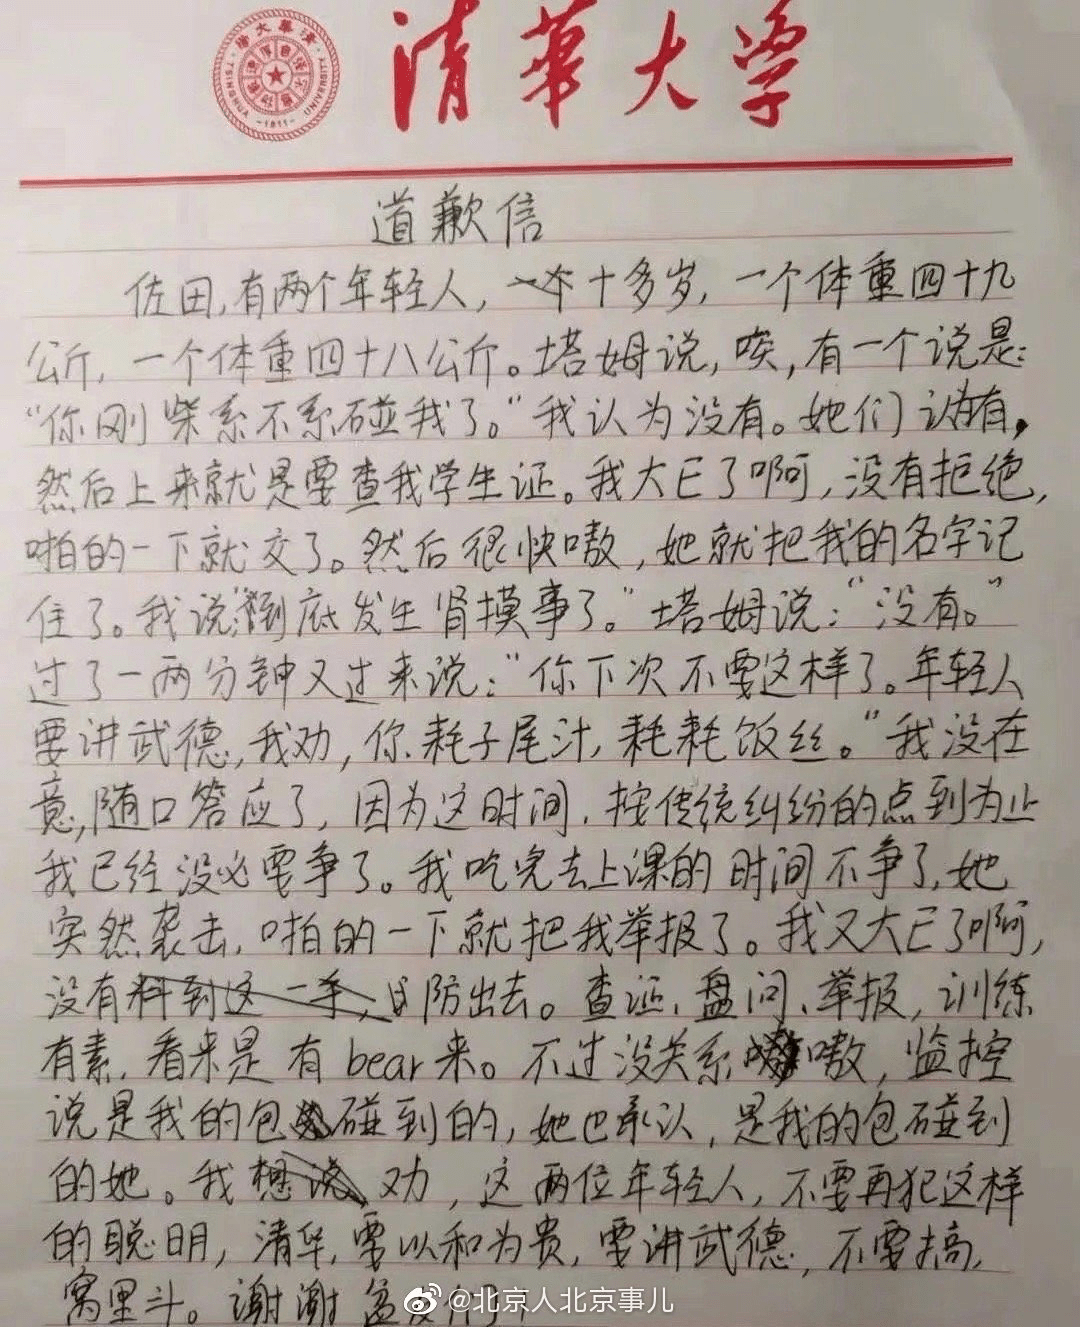 清华大学
TSINGHUA UNIVERSITY
-1911-
道歉信
佐田,有两个年轻人,一个十多岁,一个体重四十九
公斤,一个体重四十八公斤。塔姆说,唉,有一个说是:
“你刚柴系不系碰我了。”我认为没有。她们认为有。
然后上来就是要查我学生证。我大E了啊,没有拒绝,
啪的一下就交了。然后很快嗷,她就把我的名字记
住了。我说“到底发生肾摸事了。”塔姆说:“没有。”
过了一两分钟又过来说:“你下次不要这样了。年轻人
要讲武德,我劝,你耗子尾汁,耗耗饭丝。”我没在
意,随口答应了,因为这时间,按传统纠纷的点到为止
我已经没必要争了。我吃完去上课的时间不争了,她
突然袭击,啪的一下就把我举报了。我又大E了啊,
没有料到这一手,防出去。查证、盘问、举报,训练
有素,看来是有bear来。不过没关系嗷,监控
说是我的包碰到的,她也承认,是我的包碰到
的她。我想说劝,这两位年轻人,不要再犯这样
的聪明,清华,要以和为贵,要讲武德,不要搞,
窝里斗。谢谢
@北京人北京事儿